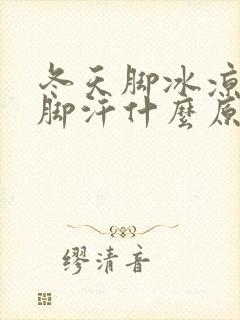 冬天脚冰凉
脚汗什麽原
缪清音